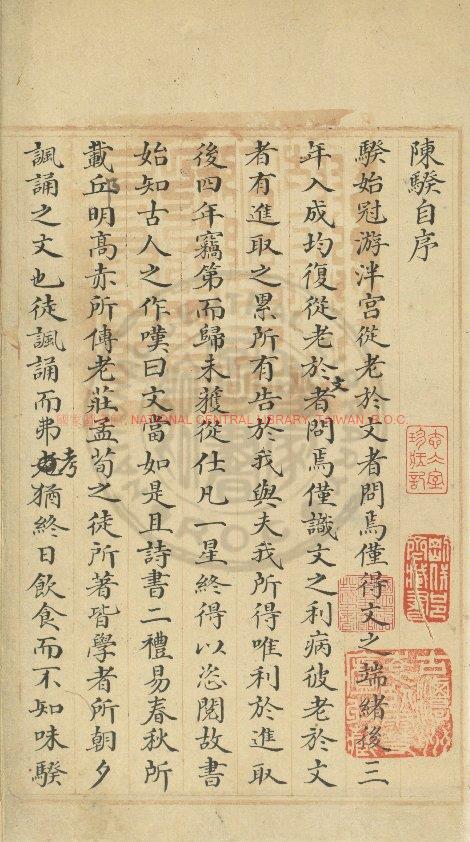 陳騤自序
騤始冠游泮宮從老於文者問焉僅得文之端緒後三
年入成均復從老於文者問焉僅識文之利病彼老於文
者有進取之累所有告於我與夫我所得唯利於進取
後四年竊第而歸未獲從仕凡一星終得以恣閱故書
始知古人之作嘆曰文當如是且詩書二禮易春秋所
載丘明高赤所傳老莊孟荀之徒所著皆學者所朝夕
諷誦之文也徒諷誦而弗考猶終日飲食而不知味騤
NATIONAL CENTRAL LIBRARY, TAIWAN, R.O.C.